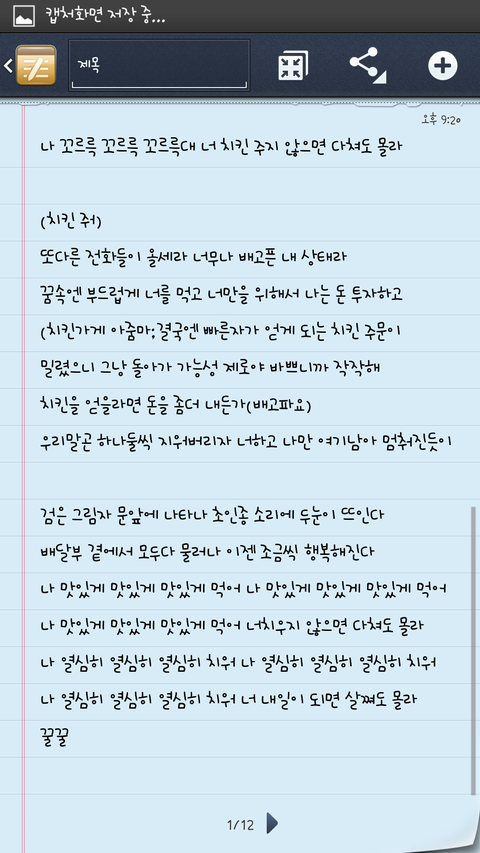 캡처화면 저장 중...
제목
오후 9:20
나 꼬르륵 꼬르륵 꼬르륵대 너 치킨 주지 않으면 다쳐도 몰라
(치킨 줘)
또다른 전화들이 올세라 너무나 배고픈 내 상태라
꿈속엔 부드럽게 너를 먹고 너만을 위해서 나는 돈 투자하고
(치킨가게 아줌마;결국엔 빠른자가 얻게 되는 치킨 주문이
밀렸으니 그냥 돌아가 가능성 제로야 바쁘니까 작작해
치킨을 얻을라면 돈을 좀더 내든가(배고파요)
우리말곤 하나둘씩 지워버리자 너하고 나만 여기남아 멈춰진듯이
검은 그림자 문앞에 나타나 초인종 소리에 두눈이 뜨인다
배달부 곁에서 모두다 물러나 이젠 조금씩 행복해진다
나 맛있게 맛있게 맛있게 먹어 나 맛있게 맛있게 맛있게 먹어
나 맛있게 맛있게 맛있게 먹어 너치우지 않으면 다쳐도 몰라
나 열심히 열심히 열심히 치워 나 열심히 열심히 열심히 치워
나 열심히 열심히 열심히 치워 너 내일이 되면 살쪄도 몰라
꿀꿀
1/12